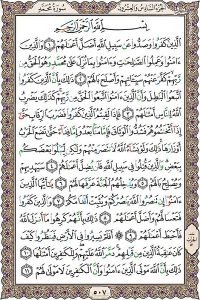 الجزء السادس والعشرون سورة محمد
بسم الله الرحمن الرحيم
الذين كفروا وصدوا عن سبيل الله أضل أعمالهم ١ والذين
ءامنوا وعملوا الصالحات وءامنوا بما نزل على محمد وهو الحق من
ربهم كفر عنهم سيئاتهم وأصلح بالهم ٢ ذلك بأن الذين كفروا
اتبعوا الباطل وأن الذين ءامنوا اتبعوا الحق من ربهم كذلك يضرب
الله للناس أمثالهم ٣ فإذا لقيتم الذين كفروا فضرب الرقاب حتى
إذا أثخنتموهم فشدوا الوثاق فإما منا بعد وإما فداء حتى تضع الحرب
أوزارها ذلك ولو يشاء الله لانتصر منهم ولكن ليبلوا
بعضكم ببعض والذين قتلوا في سبيل الله فلن يضل أعمالهم ٤ سيهديهم
ويصلح بالهم ٥ ويدخلهم الجنة عرفها لهم ٦ يا أيها الذين
ءامنوا إن تنصروا الله ينصركم ويثبت أقدامكم ٧ والذين كفروا
فتعسا لهم وأضل أعمالهم ٨ ذلك بأنهم كرهوا ما أنزل الله
فأحبط أعمالهم ٩ أفلم يسيروا في الأرض فينظروا كيف
كان عاقبة الذين من قبلهم دمر الله عليهم وللكافرين أمثالها ١٠
ذلك بأن الله مولى الذين ءامنوا وأن الكافرين لا مولى لهم ١١
٥٠٧